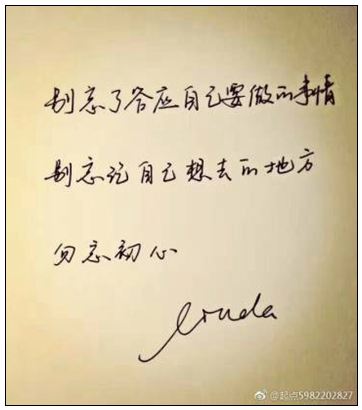 别忘了答应自己要做的事情
别忘记自己想去的地方
勿忘初心
@起点5982202827